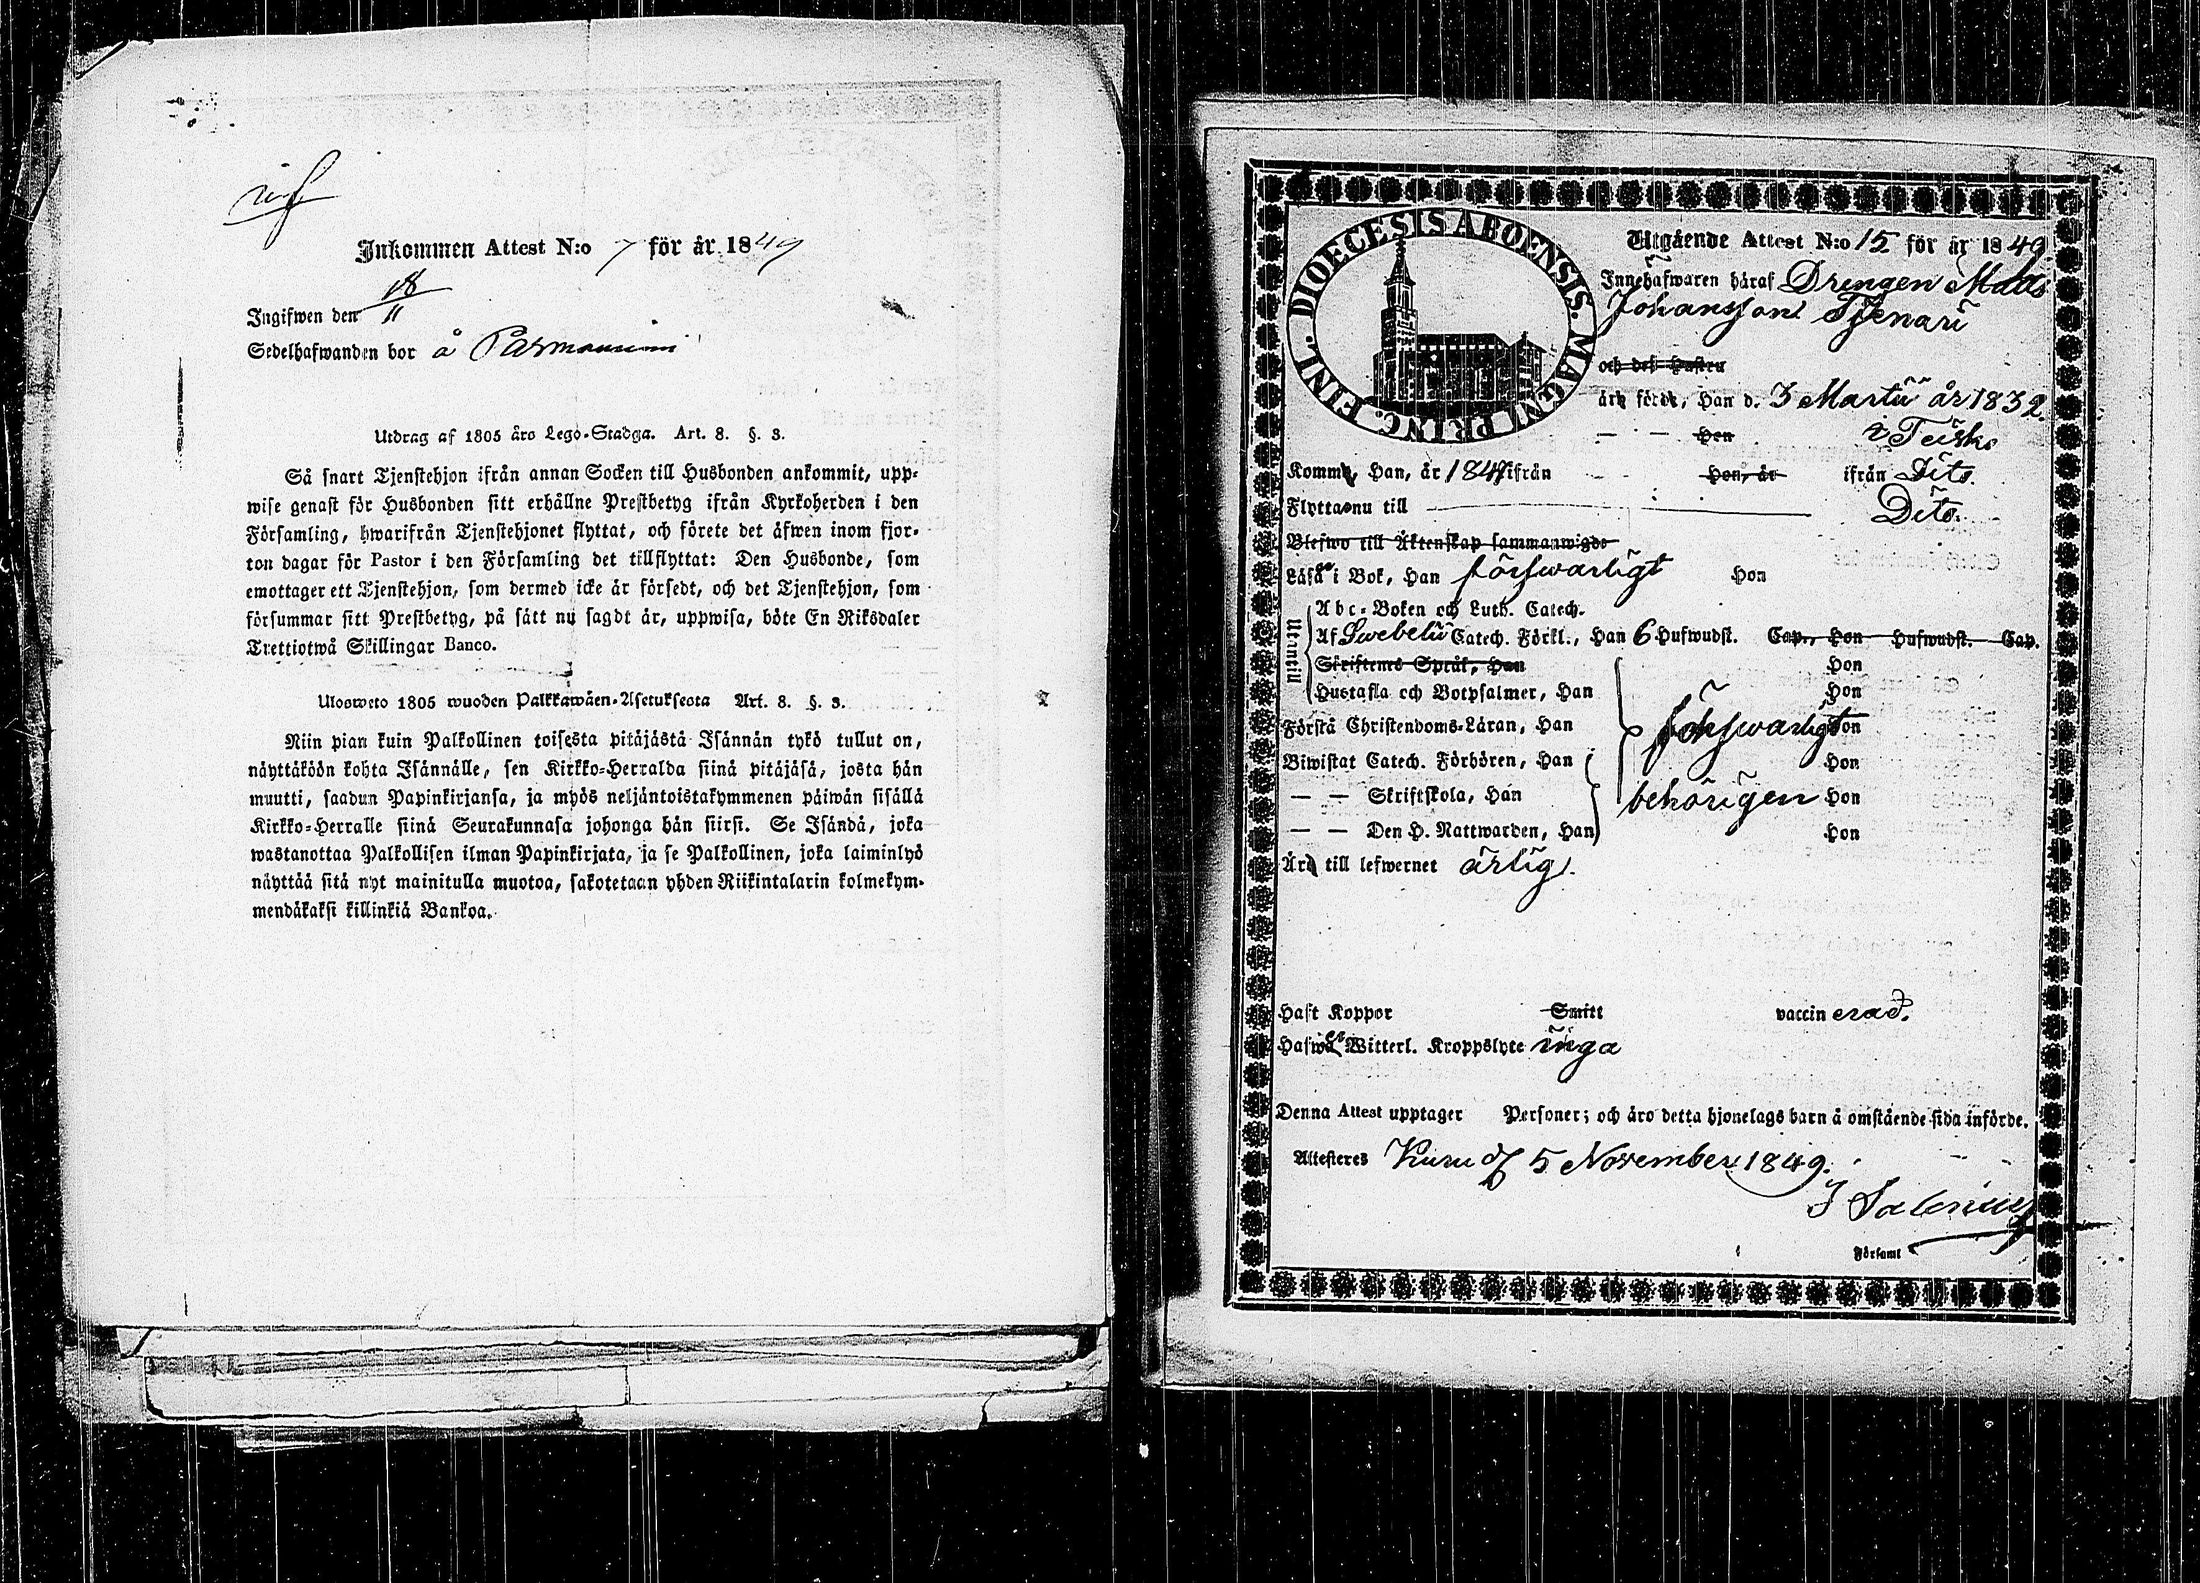 Inkommen Attest N:o 7 för år 1849
Ingifwen den 18/11
Sedelhafwanden bor å
Utdrag af 1805 års Lego-Stadga. Art. 8. §. 3.
Så snart Tjenstehjon ifrån annan Socken till Husbonden ankommit, upp-
wise genast för Husbonden sitt erhållne Prestbetyg ifrån Kyrkoherden i den
Församling, hwarifrån Tjenstehjonet flyttat, och förete det äfwen inom fjor-
ton dagar för Pastor i den Församling det tillflyttat: Den Husbonde, som
emottager ett Tjenstehjon, som dermed icke är försedt, och det Tjenstehjon, som
försummar sitt Prestbetyg, på sätt nu sagdt är, uppwisa, böte En Riksdaler
Trettiotwå Skillingar Banco.
Ulosweto 1805 wuoden Palkkawäen-Asetuksesta Art. 8. §. 3.
Niin pian kuin Palkollinen toisesta pitäjästä Isännän tykö tullut on,
näyttäköön kohta Isännälle, sen Kirkko-Herralda siinä pitäjäsä, josta hän
muutti, saadun Papinkirjansa, ja myös neljäntoistakymmenen päiwän sisällä
Kirkko-Herralle siinä Seurakunnasa johonga hän siirsi. Se Isändä, joka
wastanottaa Palkollisen ilman Papinkirjata, ja se Palkollinen, joka laiminlyö
näyttää sitä nyt mainitulla muotoa, sakotetaan yhden Riikintalarin kolmekym-
mendäkaksi killinkiä Bankoa.
DIOECESIS ABOENSIS. MAGNI PRINC. FINL.
Utgående Attest N:o 15 för år 1849.
Innehafwaren häraf Drengen Matts
Johansson
och dess Hustru
äro födde, Han d. 3 Martii år 1832.
— — Hon i Teisko
Komm, Han, år 1847 ifrån Hon, år ifrån Dito.
Flytta nu till Dito.
Blefwo till Äktenskap sammanwigde
Läsa i Bok, Han förswarligt Hon
Utantill
Abc-Boken och Luth. Catech.
Af Swebelii Catech. Förkl., Han 6 Hufwudst. Cap., Hon Hufwudst. Cap.
Skriftenes Språk, Han Hon
Hustafla och Botpsalmer, Han Hon
Förstå Christendoms-Läran, Han förswarligt Hon
Biwistat Catech. Förhören, Han Hon
— — Skriftskola, Han behörigen Hon
— — Den H. Nattwarden, Han Hon
Äro till lefwernet ärlig.
Haft Koppor Smitt vaccinerad.
Hafwa Witterl. Kroppslyte inga
Denna Attest upptager Personer; och äro detta hjonelags barn å omstående sida införde.
Attesteres Kuru d. 5 November 1849.
J Salenius
Församl